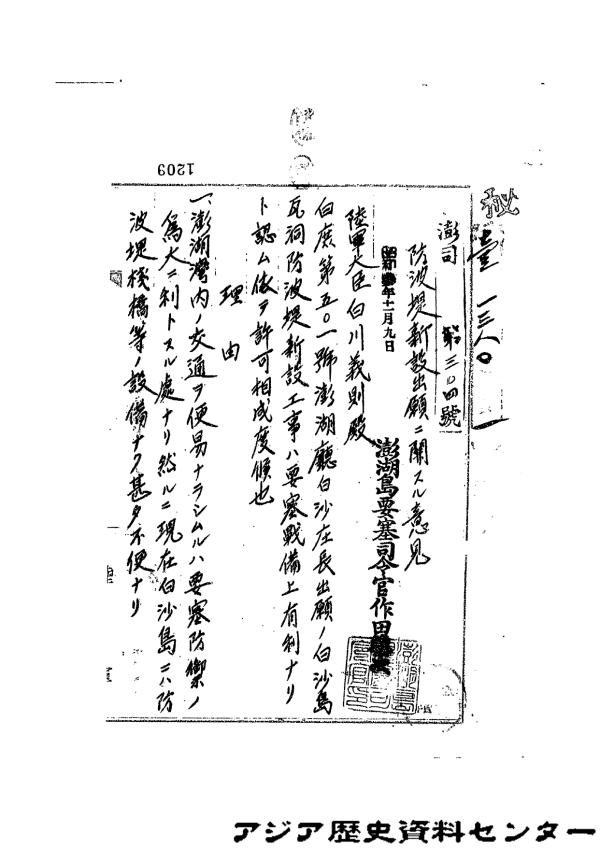 秘
壹一三八〇
澎司第三〇四號
防波堤新設出願ニ關スル意見
昭和 年十一月九日
澎湖島要塞司令官作田
陸軍大臣白川義則殿
白庶第五〇一號澎湖廳白沙庄長出願ノ白沙島
瓦硐防波堤新設工事ハ要塞戰備上有利ナリ
ト認ム依テ許可相成度候也
理由
一、澎湖灣内ノ交通ヲ便易ナラシムルハ要塞防禦ノ
爲大ニ利トスル處ナリ然ルニ現在白沙島ニハ防
波堤棧橋等ノ設備ナク甚タ不便ナリ
1209
アジア歴史資料センター